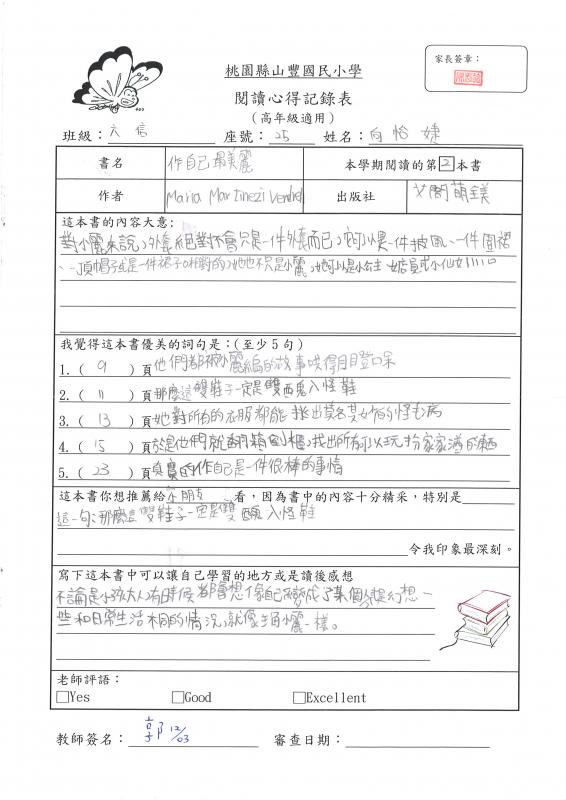 家長簽章：
桃園縣山豐國民小學
閱讀心得記錄表
（高年級適用）
班級：六信 座號：25 姓名：向怡婕
書名 作自己最美麗 本學期閱讀的第2本書
作者 Maria Martinezi Vendrell 出版社 艾閣萌鎂
這本書的內容大意：
對小麗來說，外套絕對不會只是一件外套而已，它可以是一件披風、一件圍裙
、一頂帽子或是一件裙子。相對的，她也不只是小麗，她可以是公主、女店員或小仙女……
我覺得這本書優美的詞句是：（至少5句）
1.（ 9 ）頁他們都被小麗編的故事唬得目瞪口呆
2.（ 11 ）頁那麼這雙鞋子一定是雙醜八怪鞋
3.（ 13 ）頁她對所有的衣服都能挑出莫名其妙的怪毛病
4.（ 15 ）頁於是他們就翻箱倒櫃，找出所有可以玩扮家家酒的東西
5.（ 23 ）頁真實的作自己是一件很棒的事情
這本書你想推薦給小朋友看，因為書中的內容十分精采，特別是
這一句：那麼這雙鞋子一定是雙醜八怪鞋
令我印象最深刻。
寫下這本書中可以讓自己學習的地方或是讀後感想
不論是小孩大人有時候都會想像自己變成了某個人，幻想一
些和日常生活不同的情況，就像主角小麗一樣。
老師評語：
□Yes □Good □Excellent
教師簽名：郭 12/03 審查日期：